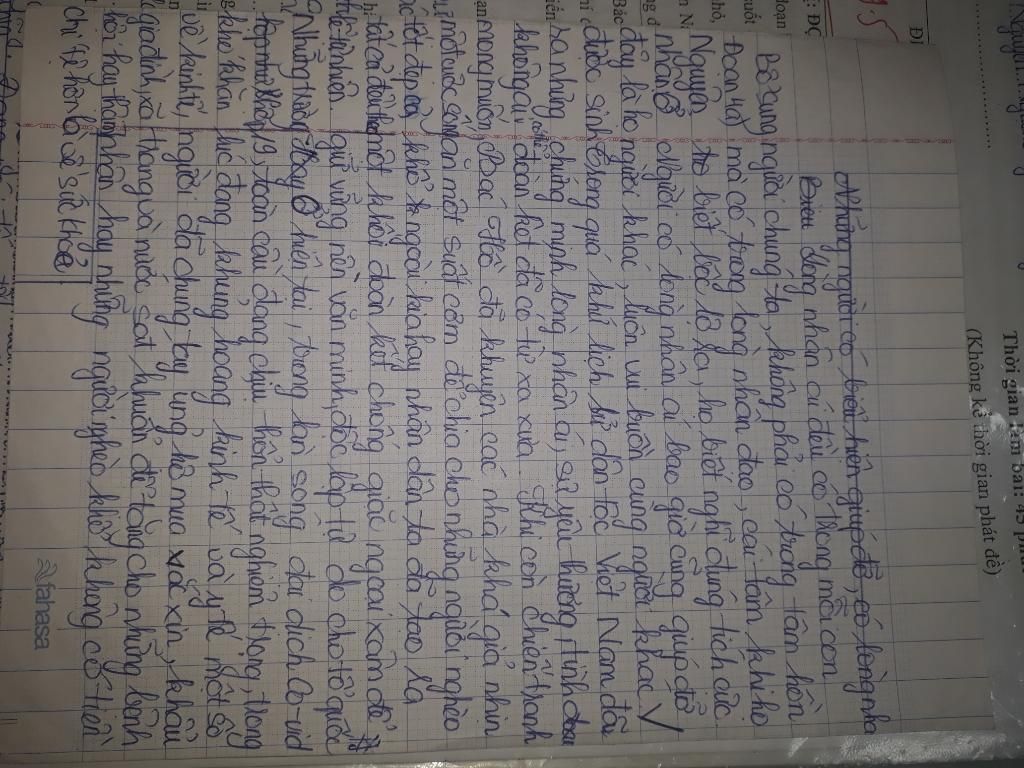 Những người có biểu hiện giúp đỡ, có lòng nhâ
Biểu lòng nhân ái đều có trong mỗi con
Bổ sung người chúng ta, không phải có trong tâm hồn
Đoạn 4 mà có trong lòng nhân đạo, cái tâm khi họ
Nguyên biết bộc lộ ra, họ biết nghĩ đúng tích cực
nhân Người có lòng nhân ái bao giờ cũng giúp đỡ
đây là họ người khác, luôn vui buồn cùng người khác
được sinh Trong quá khứ lịch sử dân tộc Việt Nam đã
ra những chứng minh lòng nhân ái, sự yêu thương tinh
không ai đoàn kết đã có từ xa xưa. Khi còn chiến tranh
mong muốn Bác Hồ đã khuyên các nhà khá giả nhịn
một cuộc sống ăn một suất cơm để chia cho những người nghèo
tốt đẹp cả khổ ngoài kia hay nhân dân ta đã tạo ra
tất cả đều một khối đoàn kết chống giặc ngoại xâm để
giữ vững nền văn minh, độc lập tự do cho tổ quốc
Những Hay ở hiện tại, trong làn sóng đại dịch Co-vid
19, toàn cầu đang chịu tổn thất nghiêm trọng, trong
khó khăn lúc đang khủng hoảng kinh tế và y tế một số
về kinh tế, người đã chung tay ủng hộ mua vắc xin, khẩu
gia đình, xã trang và nước sát khuẩn để tặng cho những bệnh
hội hay nhân hay những người nghèo khổ không có tiền
chỉ là về sức khỏe
Thời gian làm bài: 45
(Không kể thời gian phát đề)
Alahasa